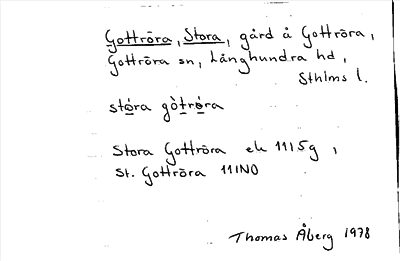 Gottröra, Stora, gård å Gottröra,
Gottröra sn, Långhundra hd,
Sthlms l.
stọ́ra gòtrọra
Stora Gottröra ek 11I5g,
St. Gottröra 11INO
Thomas Åberg 1978